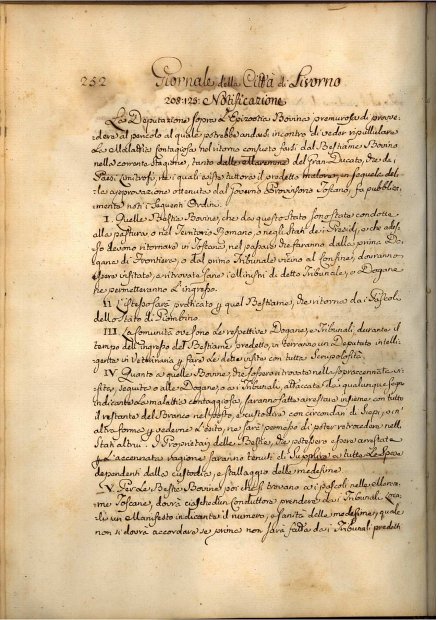 252 Giornale della Città di Livorno
208:125: Notificazione
La Deputazione sopra l'Epizootia Bovina premurosa di provve-
dere al pericolo al quale potrebbe andarsi incontro di veder ripullulare
la Malattia contagiosa nel ritorno consueto farsi dal Bestiame Bovino
nella corrente Stagione, tanto dalle Maremme del Gran-Ducato, che da'
Paesi limitrofi, ne i quali esiste tuttora il predetto malore, in sequela del-
la approvazione ottenuta dal Governo Provvisorio Toscano, fa pubblica-
mente noti i seguenti Ordini.
I. Quelle Bestie Bovine, che da questo Stato sono state condotte
alla pastura o nel Territorio Romano, o negli Stati dei Presidj, e che ades-
so devono ritornare in Toscana, nel passare che faranno dalla prima Do-
gana di Frontiera, o dal primo Tribunale vicino al Confine, dovranno
essere visitate, e ritrovate sane i Ministri di detto Tribunale, o Dogane
ne permetteranno l'ingresso.
II. L'istesso sarà praticato per quel Bestiame, che ritorna dai Pascoli
dello Stato di Piombino.
III. La Comunità ove sono le respettive Dogane, e Tribunali, durante il
tempo dell'ingresso del Bestiame predetto, vi terranno un Deputato intelli-
gente in Veterinaria per fare le dette visite con tutta Scrupolosità.
IV. Quanto a quelle Bovine, che fossero ritrovate nelle sopraccennate vi-
site, seguite o alle Dogane, o a' Tribunali, attaccate da qualunque segno
indicante la malattia contagiosa, saranno fatte arrestare insieme con tutto
il restante del Branco nel posto, e custodire con circondari di Siepi, o in
altra forma per vederne l'esito, ne sarà permesso di poter retrocedere negli
Stati altrui. I Proprietarj delle Bestie, che potessero essere arrestate
per l'accennata cagione saranno tenuti di Supplire a tutte le Spese
dependenti dalla custodia, e stallaggio delle medesime.
V. Per le Bestie Bovine poi che si trovano ai pascoli nelle Marem-
me Toscane, dovrà ciaschedun conduttore prendere dai Tribunali Loca-
li un Manifesto indicante il numero, e sanità delle medesime, quale
non si dovrà accordare se prima non sarà fatta dai Tribunali predetti